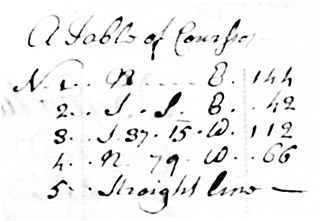 A Table of Courses
No 1 . . N . . . . E . 144
2 . . S . S . E . . 42
3 . . S 37 . 15 . W . 112
4 . . N . 79 . W . . 66
5 . . Straight line —